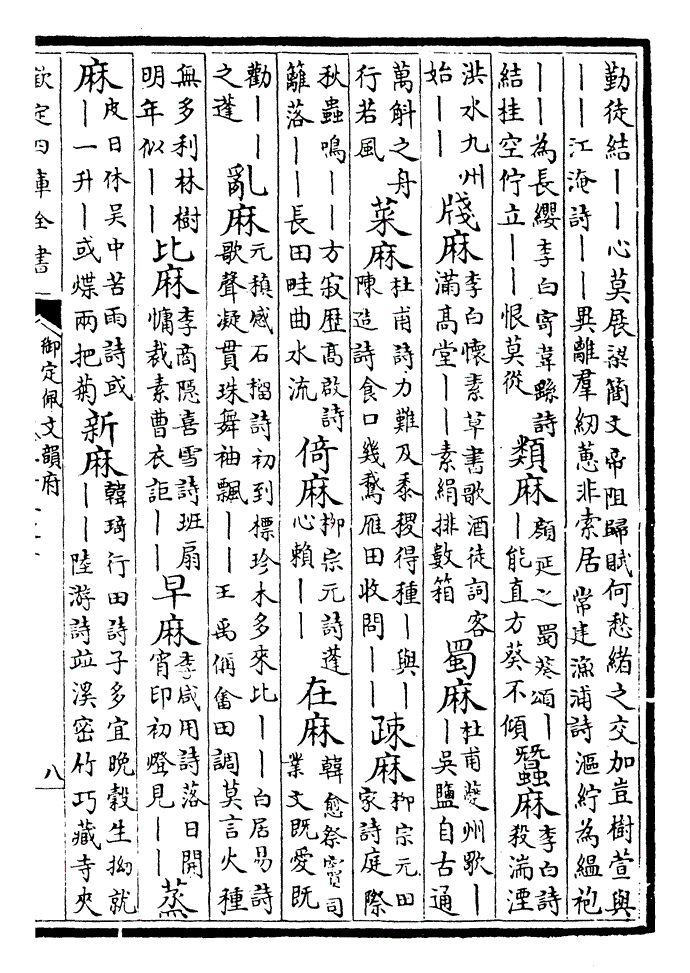 勤徒結――心莫展梁簡文帝阻歸賦何愁緒之交加豈樹萱與
――江淹詩――異離羣紉蕙非索居常建漁浦詩漚紵為緼袍
――為長纓李白寄韋縣詩
結挂空佇立――恨莫從
類麻
顔延之蜀葵頌―
―能直方葵不傾
蠶麻
李白詩
殺湍湮
洪水九州
始――
牋麻
李白懷素草書歌酒徒詞客
滿高堂――素絹排數箱
蜀麻
杜甫夔州歌―
―吳鹽自古通
萬斛之舟
行若風
菜麻
杜甫詩力難及黍稷得種―與―
陳造詩食口幾鵞雁田收問――
疎麻
柳宗元田
家詩庭際
秋蟲鳴――方寂歴高啟詩
籬落――長田畦曲水流
倚麻
柳宗元詩蓬
心頼――
在麻
韓愈祭竇司
業文既愛既
勸――
之蓬
亂麻
元稹感石榴詩初到標珍木多來比――白居易詩
歌聲凝貫珠舞袖飄――王禹偁畬田調莫言火種
無多利林樹
明年似――
比麻
李商隱喜雪詩班扇
慵裁素曹衣詎――
早麻
李咸用詩落日開
宵印初燈見――
蒸
麻
皮日休吳中苦雨詩或
―一升―或煠兩把菊
新麻
韓琦行田詩子多宜晚穀生拗就
――陸游詩竝溪密竹巧藏寺夾
欽定四庫全書
御定佩文韻府
八